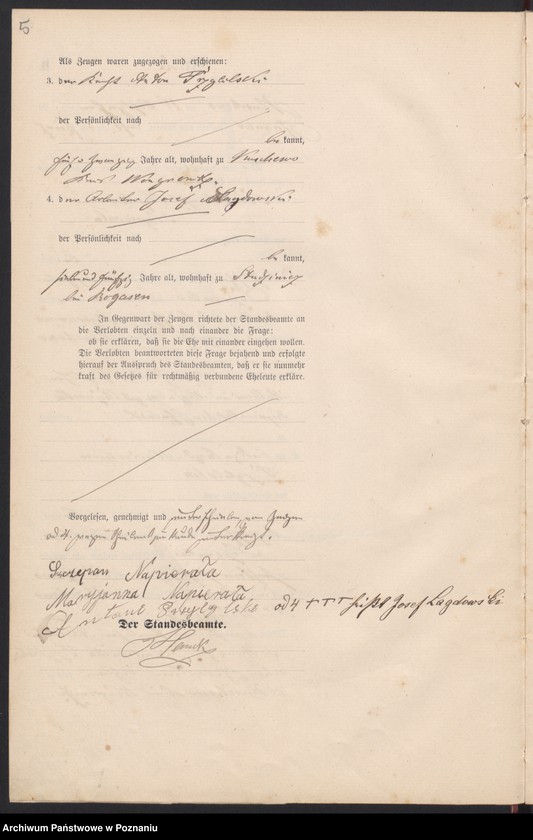 5
Als Zeugen waren zugezogen und erschienen:
3. der Knecht Anton Przybylski
der Persönlichkeit nach
be kannt,
Jahre alt, wohnhaft zu
Kreis Wongrowitz.
4. der Arbeiter Josef Lagdowski
der Persönlichkeit nach
be kannt,
siebenundfünfzig Jahre alt, wohnhaft zu Studzieniec
bei Rogasen
In Gegenwart der Zeugen richtete der Standesbeamte an
die Verlobten einzeln und nach einander die Frage:
ob sie erklären, daß sie die Ehe mit einander eingehen wollen.
Die Verlobten beantworteten diese Frage bejahend und erfolgte
hierauf der Ausspruch des Standesbeamten, daß er sie nunmehr
kraft des Gesetzes für rechtmäßig verbundene Eheleute erkläre.
Vorgelesen, genehmigt und unterschrieben, vom Zeugen
ad 4. wegen
Szczepan Napierała
Maryjanna Napierała
Antoni Przybylski ad 4 +++ Josef Lagdowski
Der Standesbeamte.
Archiwum Państwowe w Poznaniu